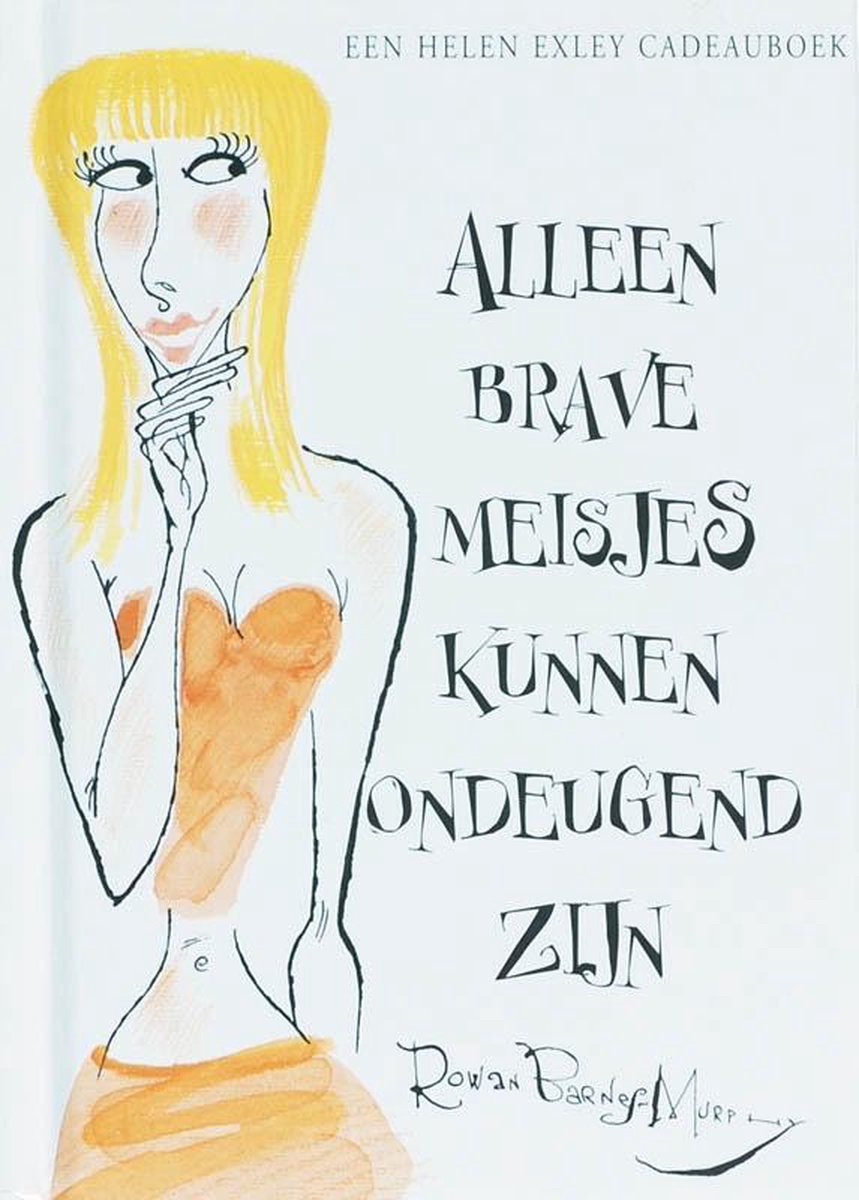 EEN HELEN EXLEY CADEAUBOEK
ALLEEN
BRAVE
MEISJES
KUNNEN
ONDEUGEND
ZIJN
ROWAN BARNES-MURPHY